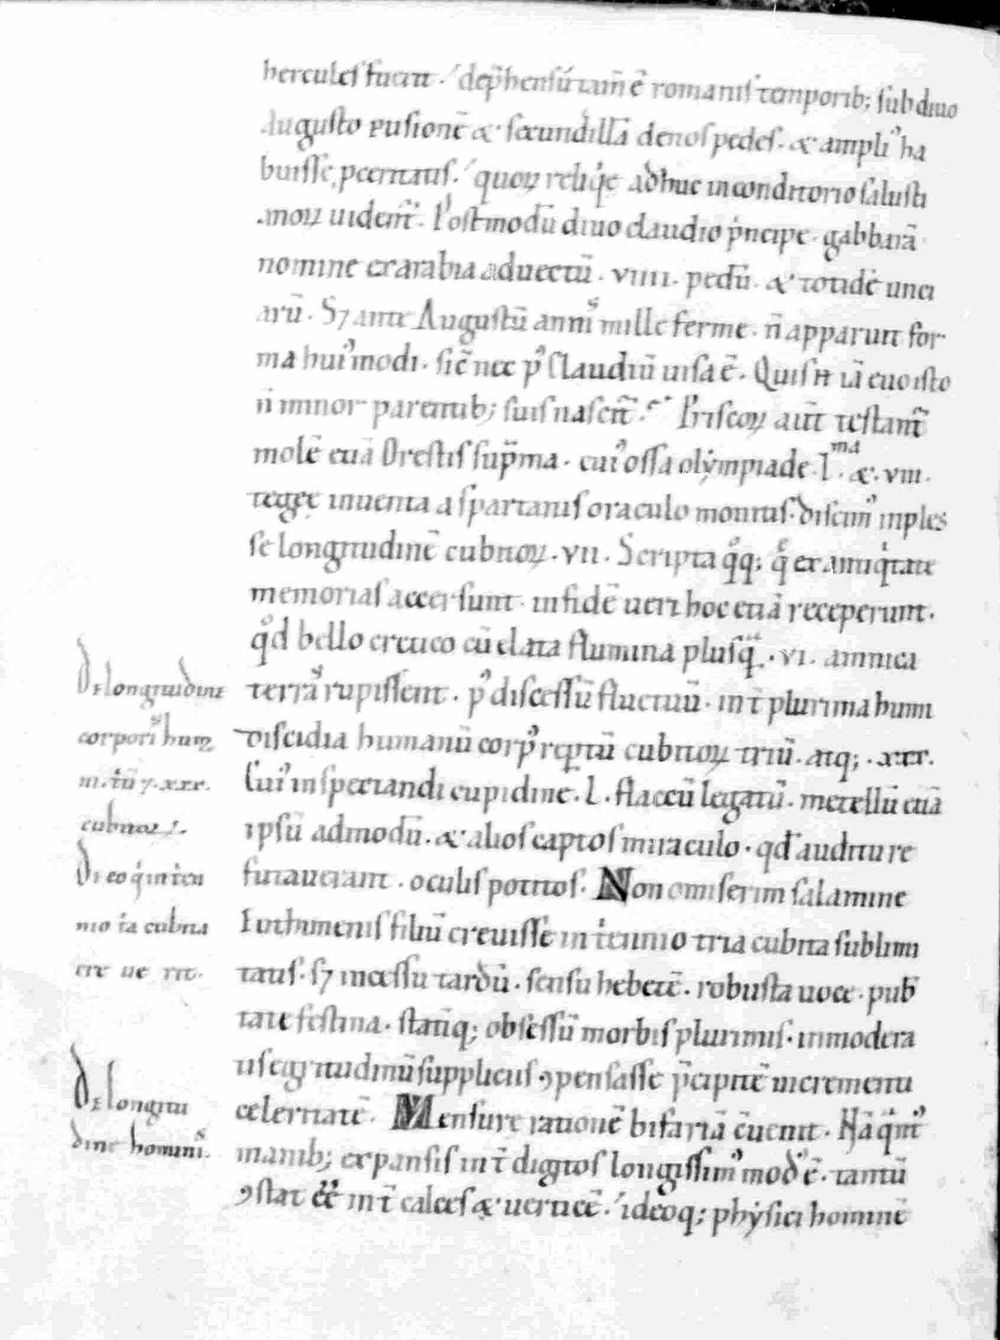 hercules fuerit. dep̄hensū tam̄ ē romanis temporib; sub diuo
Augusto pusionē & secundillā denos pedes. & ampliꝰ ha
buisse p̱ceritatis. quoꝝ reliq̇e adhuc inconditorio salusti
anoꝝ uident̄. Postmodū diuo claudio p̍ncipe. gabbarā
nomine ex arabia aduectū. viiii. pedū. & totidē unci
arū. Sꝫ ante Augustū annis mille ferme. n̄ apparuit for
ma huiꝰmodi. sic̄ nec pꝰ Claudiū uisa ē. Quis n̄ iā euo isto
n̄ minor parentib; suis nascit̄. Priscoꝝ aut̄ testant̄
molē etiā Orestis sup̄ma. cuiꝰ ossa olẏmpiade .l.ma &. viii.
tegeę inuenta a spartanis oraculo monitis. discimꝰ inples
se longitudinē cubitoꝝ. vii. Scripta qͦq; q̄ ex antiqͥtate
memorias accersunt. in fidē ueri hoc etiā receperunt.
qͦd bello cretico cū elata flumina plusqͣ. vi. amnica
terrā rupissent. pꝰ discessū fluctuū. int̄ plurima humi
discidia humanū corpꝰ rep̱tū cubitoꝝ triū. atq;. xxx.
Cuiꝰ inspectandi cupidine. L. flaccū legatū. metellū etiā
ipsū admodū. & alios captos miraculo. qd̄ auditu re
futauerant. oculis potitos. Non omiserim salamine
Euthimenis filiū creuisse in tͥennio tria cubita sublimi
tatis. sꝫ incessu tardū. sensu hebetē. robusta uoce. pub̄
tate festina. statī q; obsessū morbis plurimis. inmodera
tis egritudinū suppliciis ꝯpensasse p̄cipitē incrementi
celeritatē. Mensure rationē bifariā c̄uenit. Nā qͣntꝰ
manib; expansis int̄ digitos longissimꝰ modꝰ ē. tantū
ꝯstat eē int̄ calces & uerticē. ideoq; phẏsici hominē
De longitudine
corporis humȝ
iii. tͥū ⁊ .xxx.
cubitoꝝ.
De eo qͥ in tͥen
nio tͥa cubita
cre ue rit.
De longitu
dine hominis.